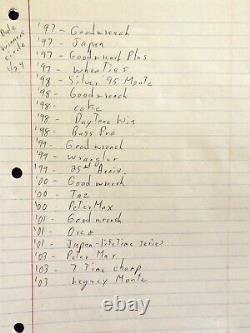 Dale
winners
circle
1/24
'97 - Goodwrench
'97 - Japan
'97 - Goodwrench Plus
'97 - Wheaties
'98 - Silver '95 Monte
'98 - Goodwrench
'98 - coke
'98 - Daytona Win
'98 - Bass Pro
'99 - Goodwrench
'99 - Wrangler
'99 - 25th Anniv.
'00 - Goodwrench
'00 - Taz
'00 PeterMax
'01 - Goodwrench
'01 - Oreo
'01 - Japan-lifetime series
'03 - Peter Max
'03 - 7 Time champ
'03 Legacy Monte